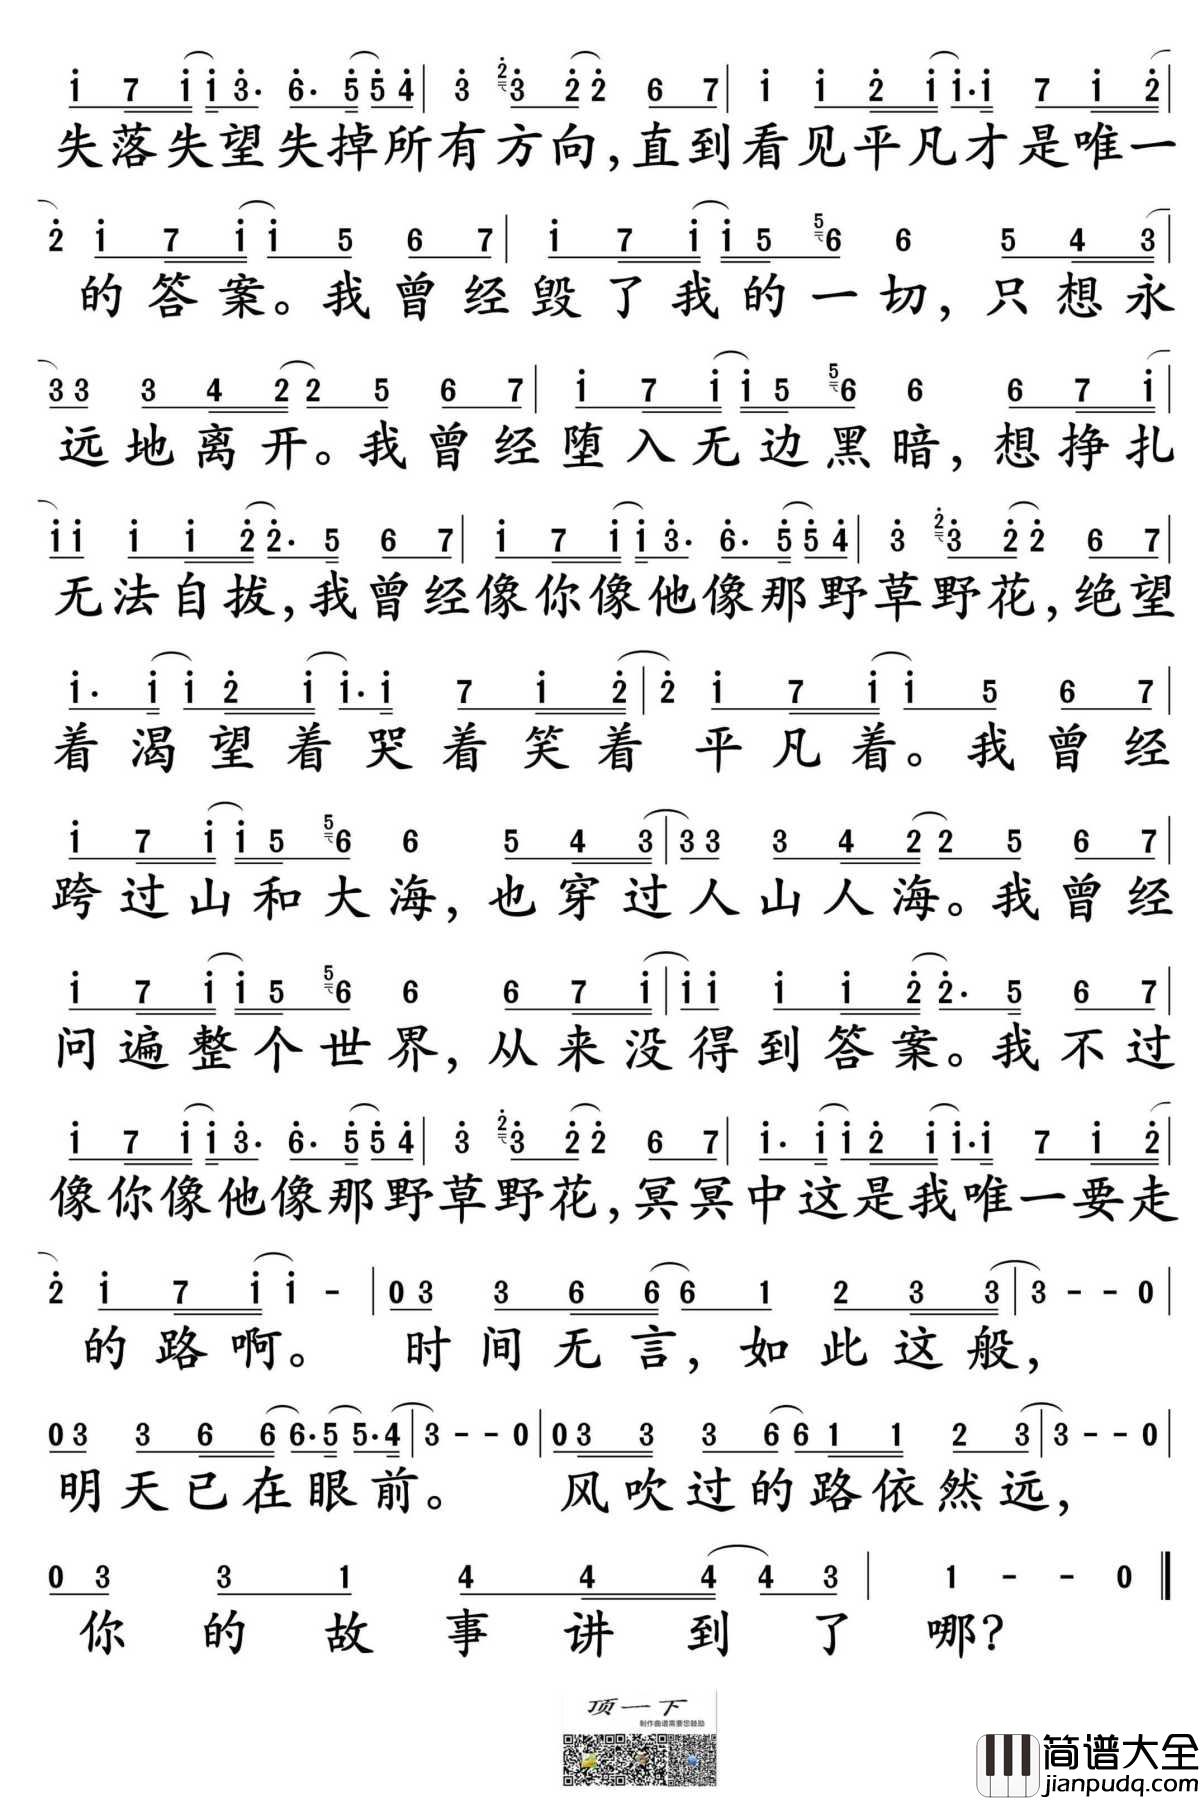 1 7 1 1 3· 6· 5 5 4 | 3 2 3 2 2 6 7 | 1 1 2 1 1· 1 7 1 2 |
失落失望失掉所有方向,直到看见平凡才是唯一
2 1 7 1 1 5 6 7 | 1 7 1 1 5 5 6 6 5 4 3 |
的答案。我曾经毁了我的一切,只想永
3 3 3 4 2 2 5 6 7 | 1 7 1 1 5 5 6 6 6 7 1 |
远地离开。我曾经堕入无边黑暗,想挣扎
1 1 1 1 2 2· 5 6 7 | 1 7 1 1 3· 6· 5 5 4 | 3 2 3 2 2 6 7 |
无法自拔,我曾经像你像他像那野草野花,绝望
1· 1 1 2 1 1· 1 7 1 2 | 2 1 7 1 1 5 6 7 |
着渴望着哭着笑着平凡着。我曾经
1 7 1 1 5 5 6 6 5 4 3 | 3 3 3 4 2 2 5 6 7 |
跨过山和大海,也穿过人山人海。我曾经
1 7 1 1 5 5 6 6 6 7 1 | 1 1 1 1 2 2· 5 6 7 |
问遍整个世界,从来没得到答案。我不过
1 7 1 1 3· 6· 5 5 4 | 3 2 3 2 2 6 7 | 1· 1 1 2 1 1· 1 7 1 2 |
像你像他像那野草野花,冥冥中这是我唯一要走
2 1 7 1 1 - | 0 3 3 6 6 6 1 2 3 3 | 3 - - 0 |
的路啊。时间无言,如此这般,
0 3 3 6 6 6· 5 5· 4 | 3 - - 0 | 0 3 3 3 6 6 1 1 2 3 | 3 - - 0 |
明天已在眼前。风吹过的路依然远,
0 3 3 1 4 4 4 4 3 | 1 - - 0 ‖
你的故事讲到了哪?
顶一下
制作曲谱需要您鼓励
简谱大全
jianpudq.com